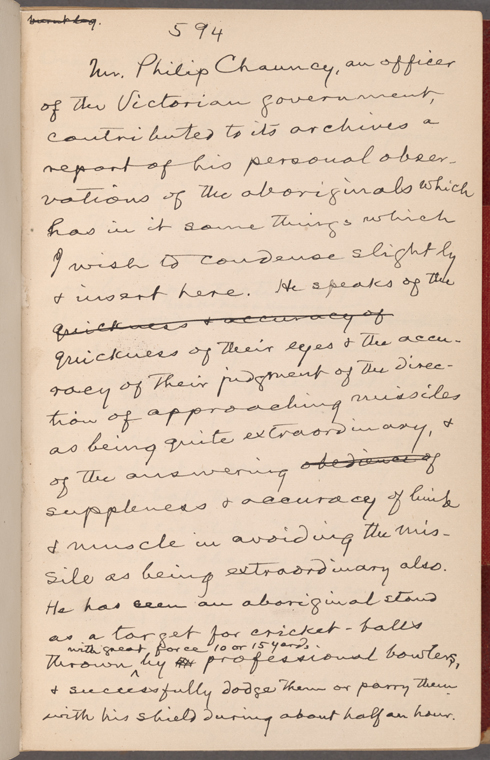 594
Mr. Philip Chauncy, an officer
of the Victorian government,
contributed to its archives a
report of his personal obser-
vations of the aboriginals which
has in it some things which
I wish to condense slightly
& insert here. He speaks of the
quickness & accuracy of
quickness of their eyes & the accu-
racy of their judgment of the direc-
tion of approaching missiles
as being quite extraordinary, &
of the answering obedience of
suppleness & accuracy of limb
& muscle in avoiding the mis-
sile as being extraordinary also.
He has seen an aboriginal stand
as a target for cricket-balls
with great force 10 or 15 yards.
thrown by professional bowlers,
& successfully dodge them or parry them
with his shield during about half an hour.